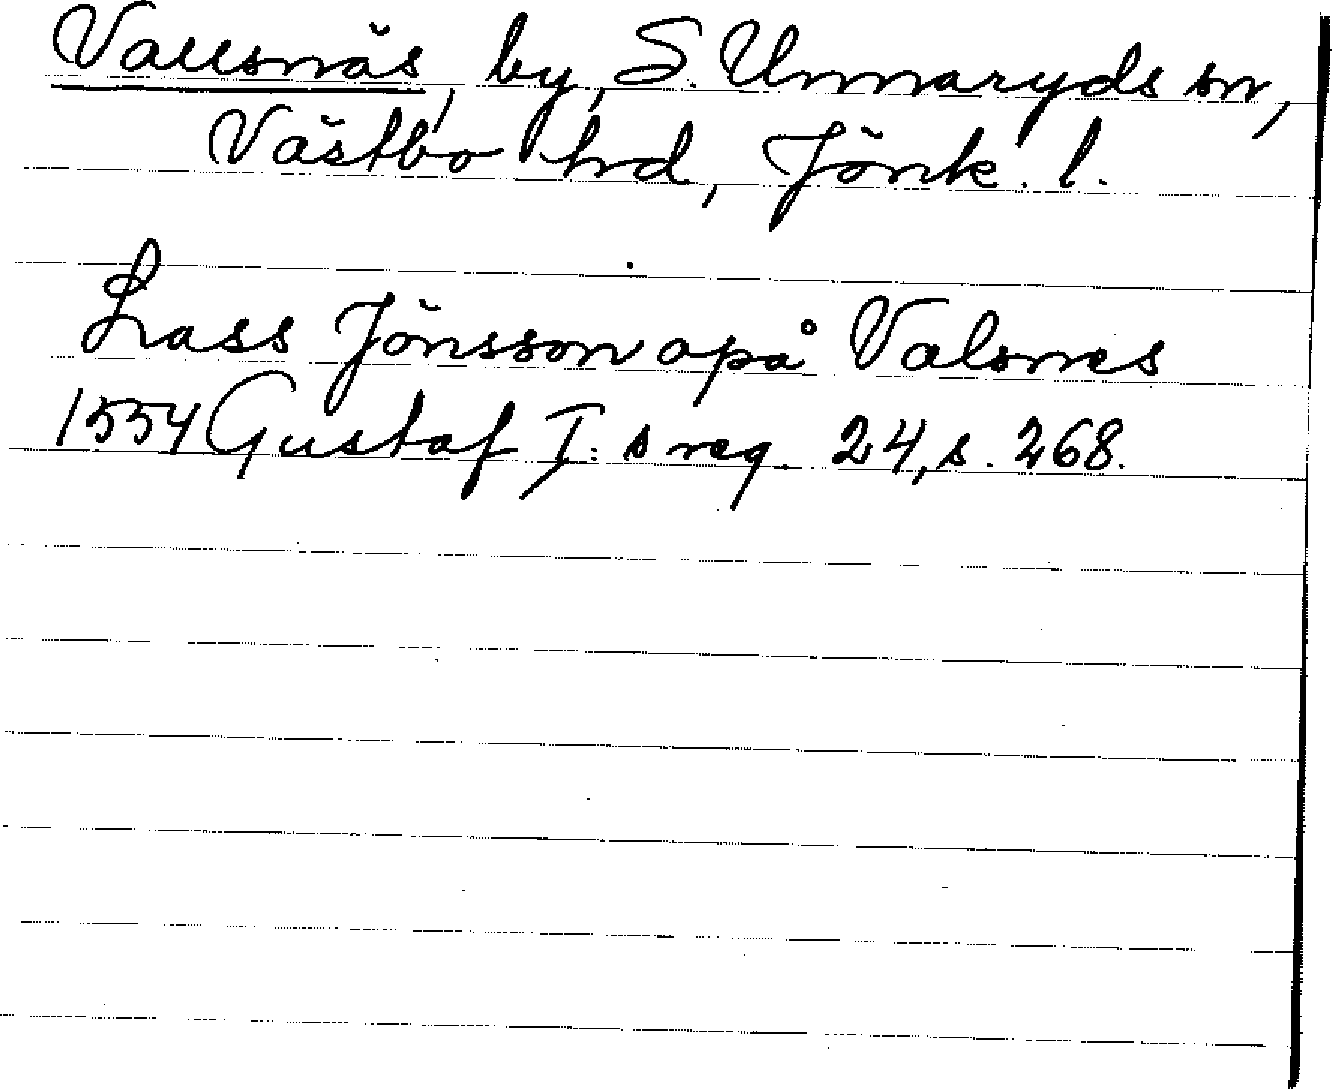 Vallsnäs, by, S. Unnaryds sn,
Västbo hrd, Jönk. l.
Lass Jönsson apå Valsnes
1554 Gustaf I:s reg. 24, s. 268.